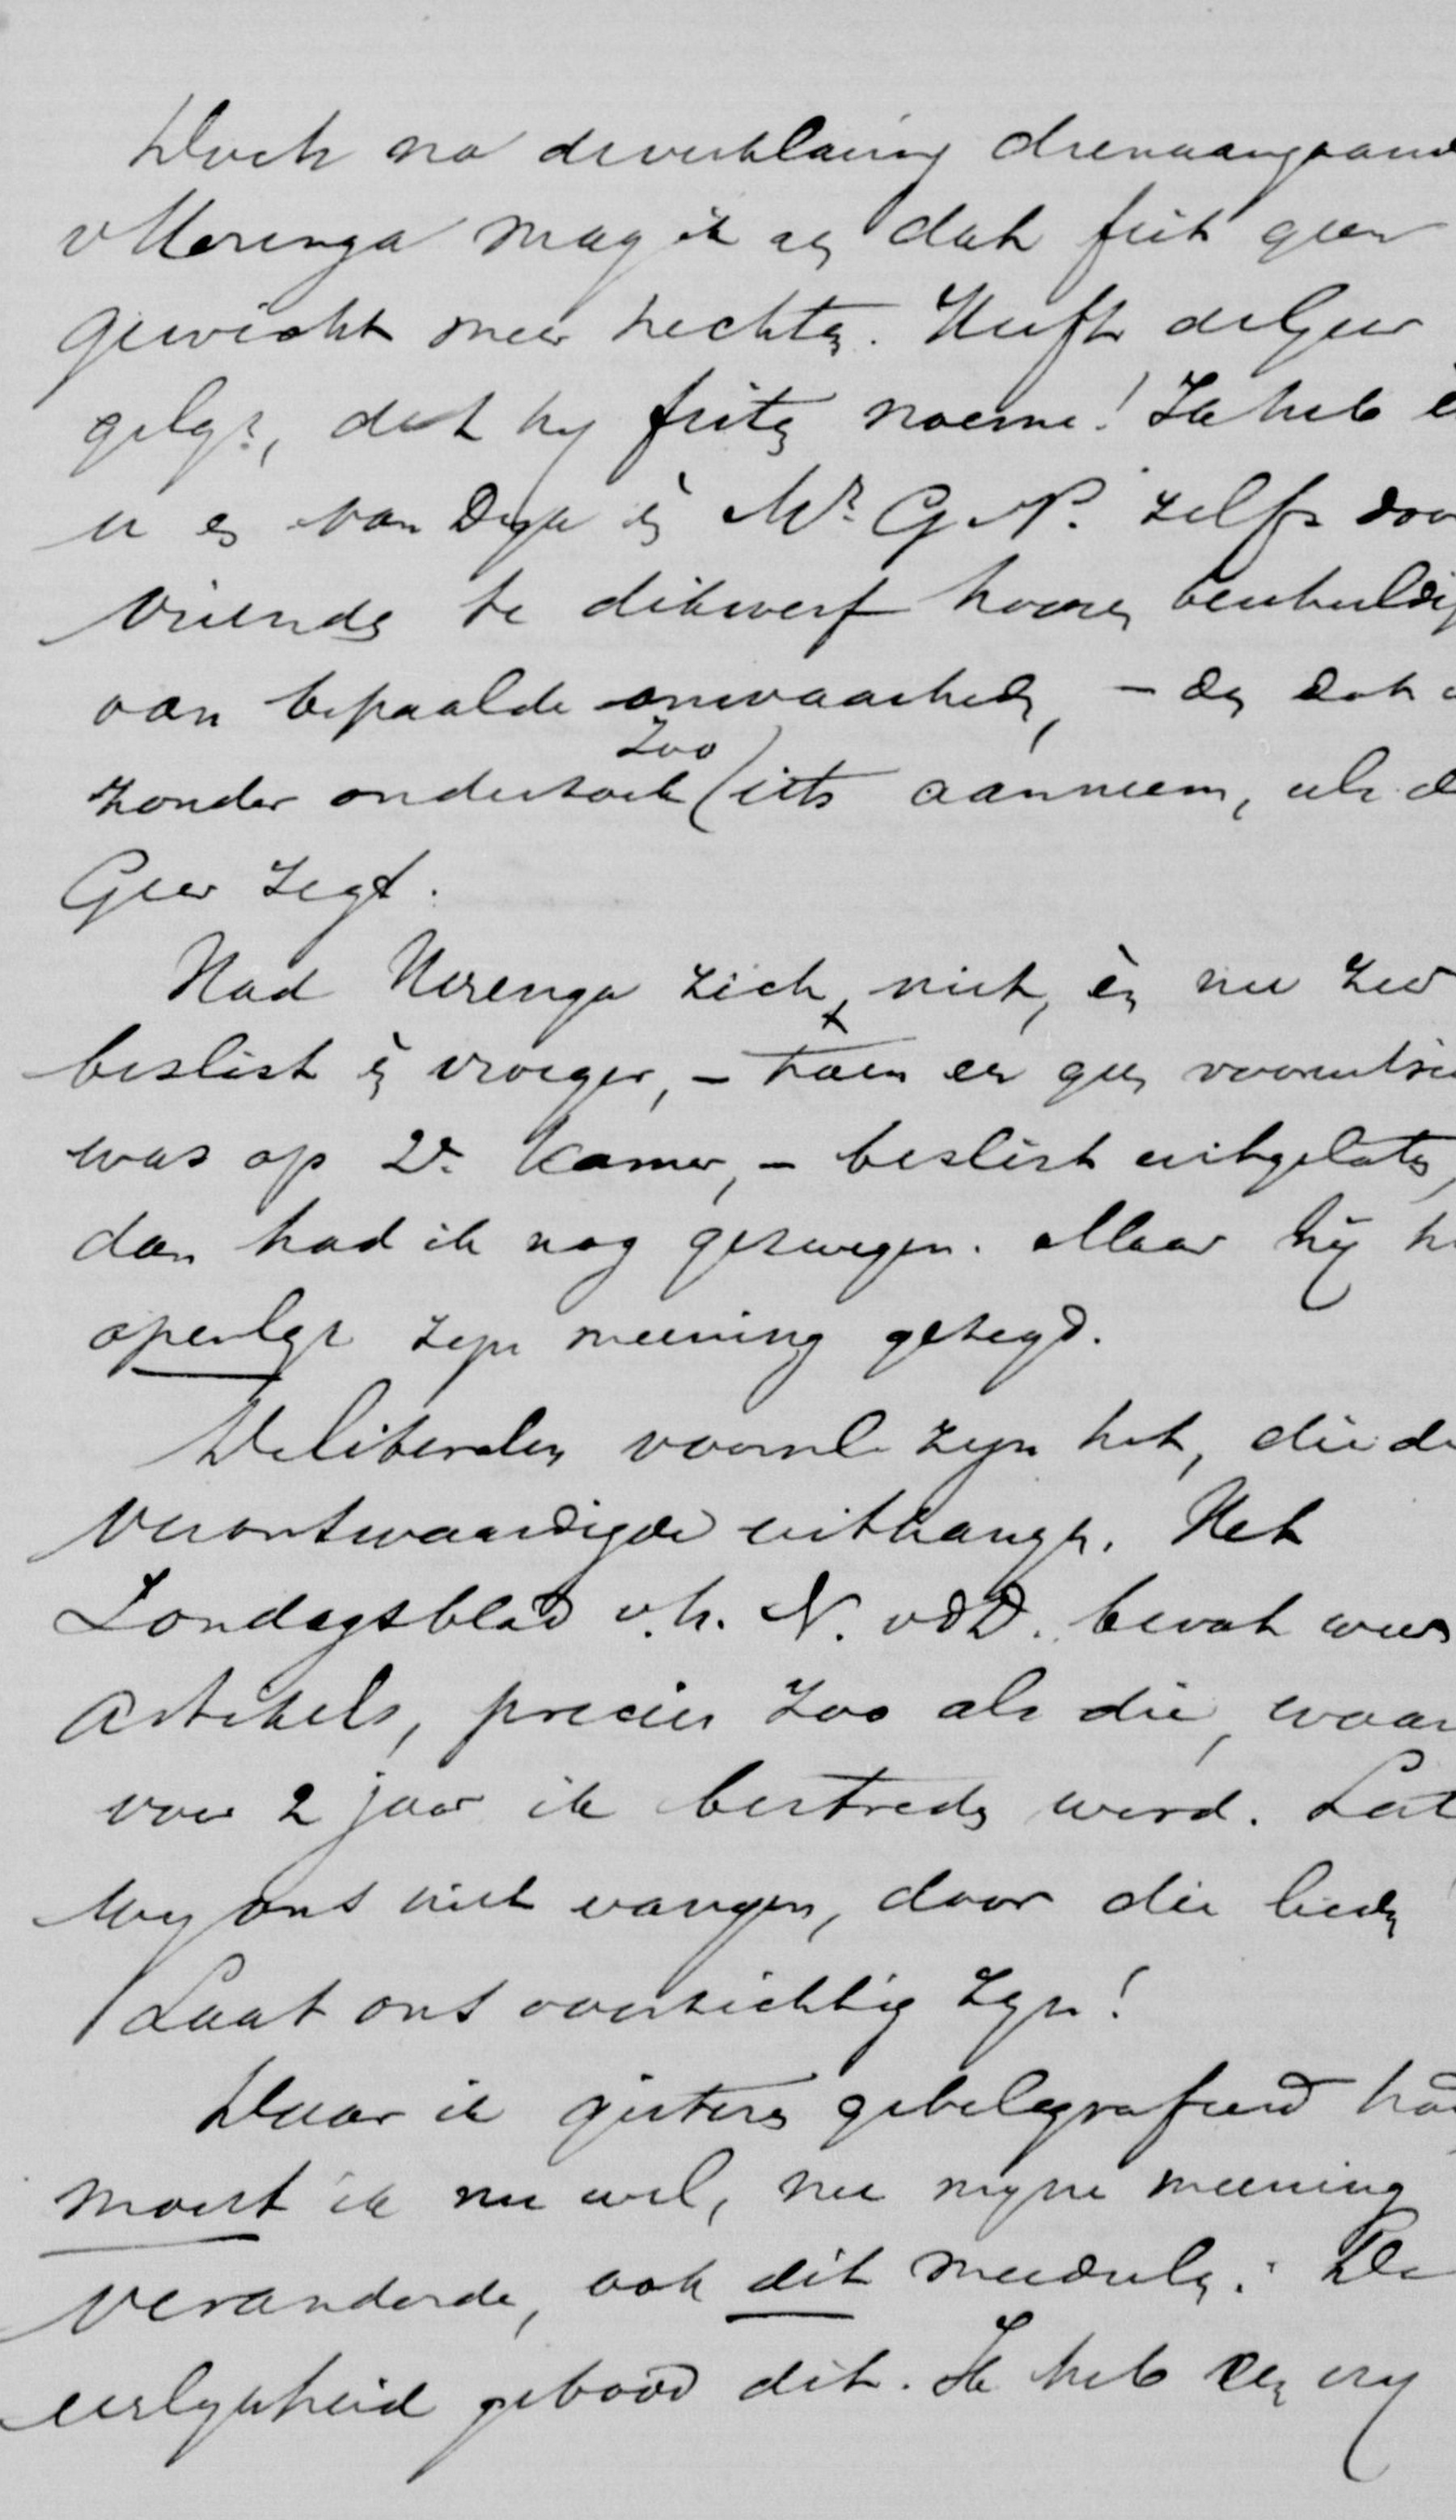 Doch na de verklaring dienaangaande
v Merenga mag ik aan dat feit geen
gewicht meer hechten. Heeft de Geer
gelijk, dat hij feiten noeme! Ik heb
u en van Dijk en Mr. G. P. zelfs door
vrienden te dikwerf hooren beschuldig
van bepaalde onwaarheden, – dan dat
zonder onderzoek zoo iets aanneem, als d
Geer zegt.
Had Merenga zich niet, èn nu zeer
beslist èn vroeger, – toen er geen vooruitzi
was op 2e Kamer, – beslist uitgelaten,
dan had ik nog gezwegen. Maar hij h
openlijk zijn meening gezegd.
De liberalen voornl. zijn het, die de
verontwaardigde uithangen. Het
Zondagsblad v.h. N. v d D. bevat weer
artikels, precies zoo als die, waar
voor 2 jaar ik bestreden werd. Laat
wij ons niet vangen, door die lieden
Laat ons voorzichtig zijn!
Daar ik gisteren getelegrafeerd had
moest ik nu wel, nu mijne meening
veranderde, ook dit meedeelen. De
eerlijkheid gebood dit. Ik heb